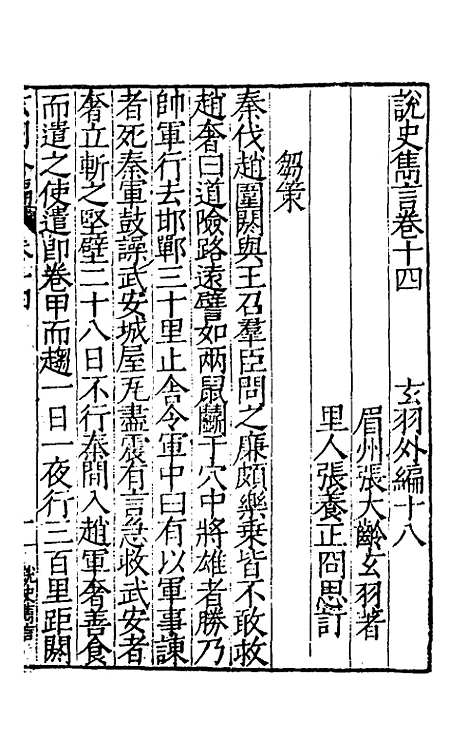 說史雋言卷十四　玄羽外編十八
眉州張大齡玄羽著
里人張養正冏思訂
芻策
秦伐趙圍閼與王召羣臣問之廉頗樂乗皆不敢救
趙奢曰道險路遠譬如兩鼠鬭于穴中將雄者勝乃
帥軍行去邯鄲三十里止舍令軍中曰有以軍事諫
者死秦軍鼓譟武安城屋瓦盡震有言急收武安者
奢立斬之堅壁二十八日不行秦間入趙軍奢善食
而遣之使遣卽卷甲而趨一日一夜行三百里距閼
說史雋言